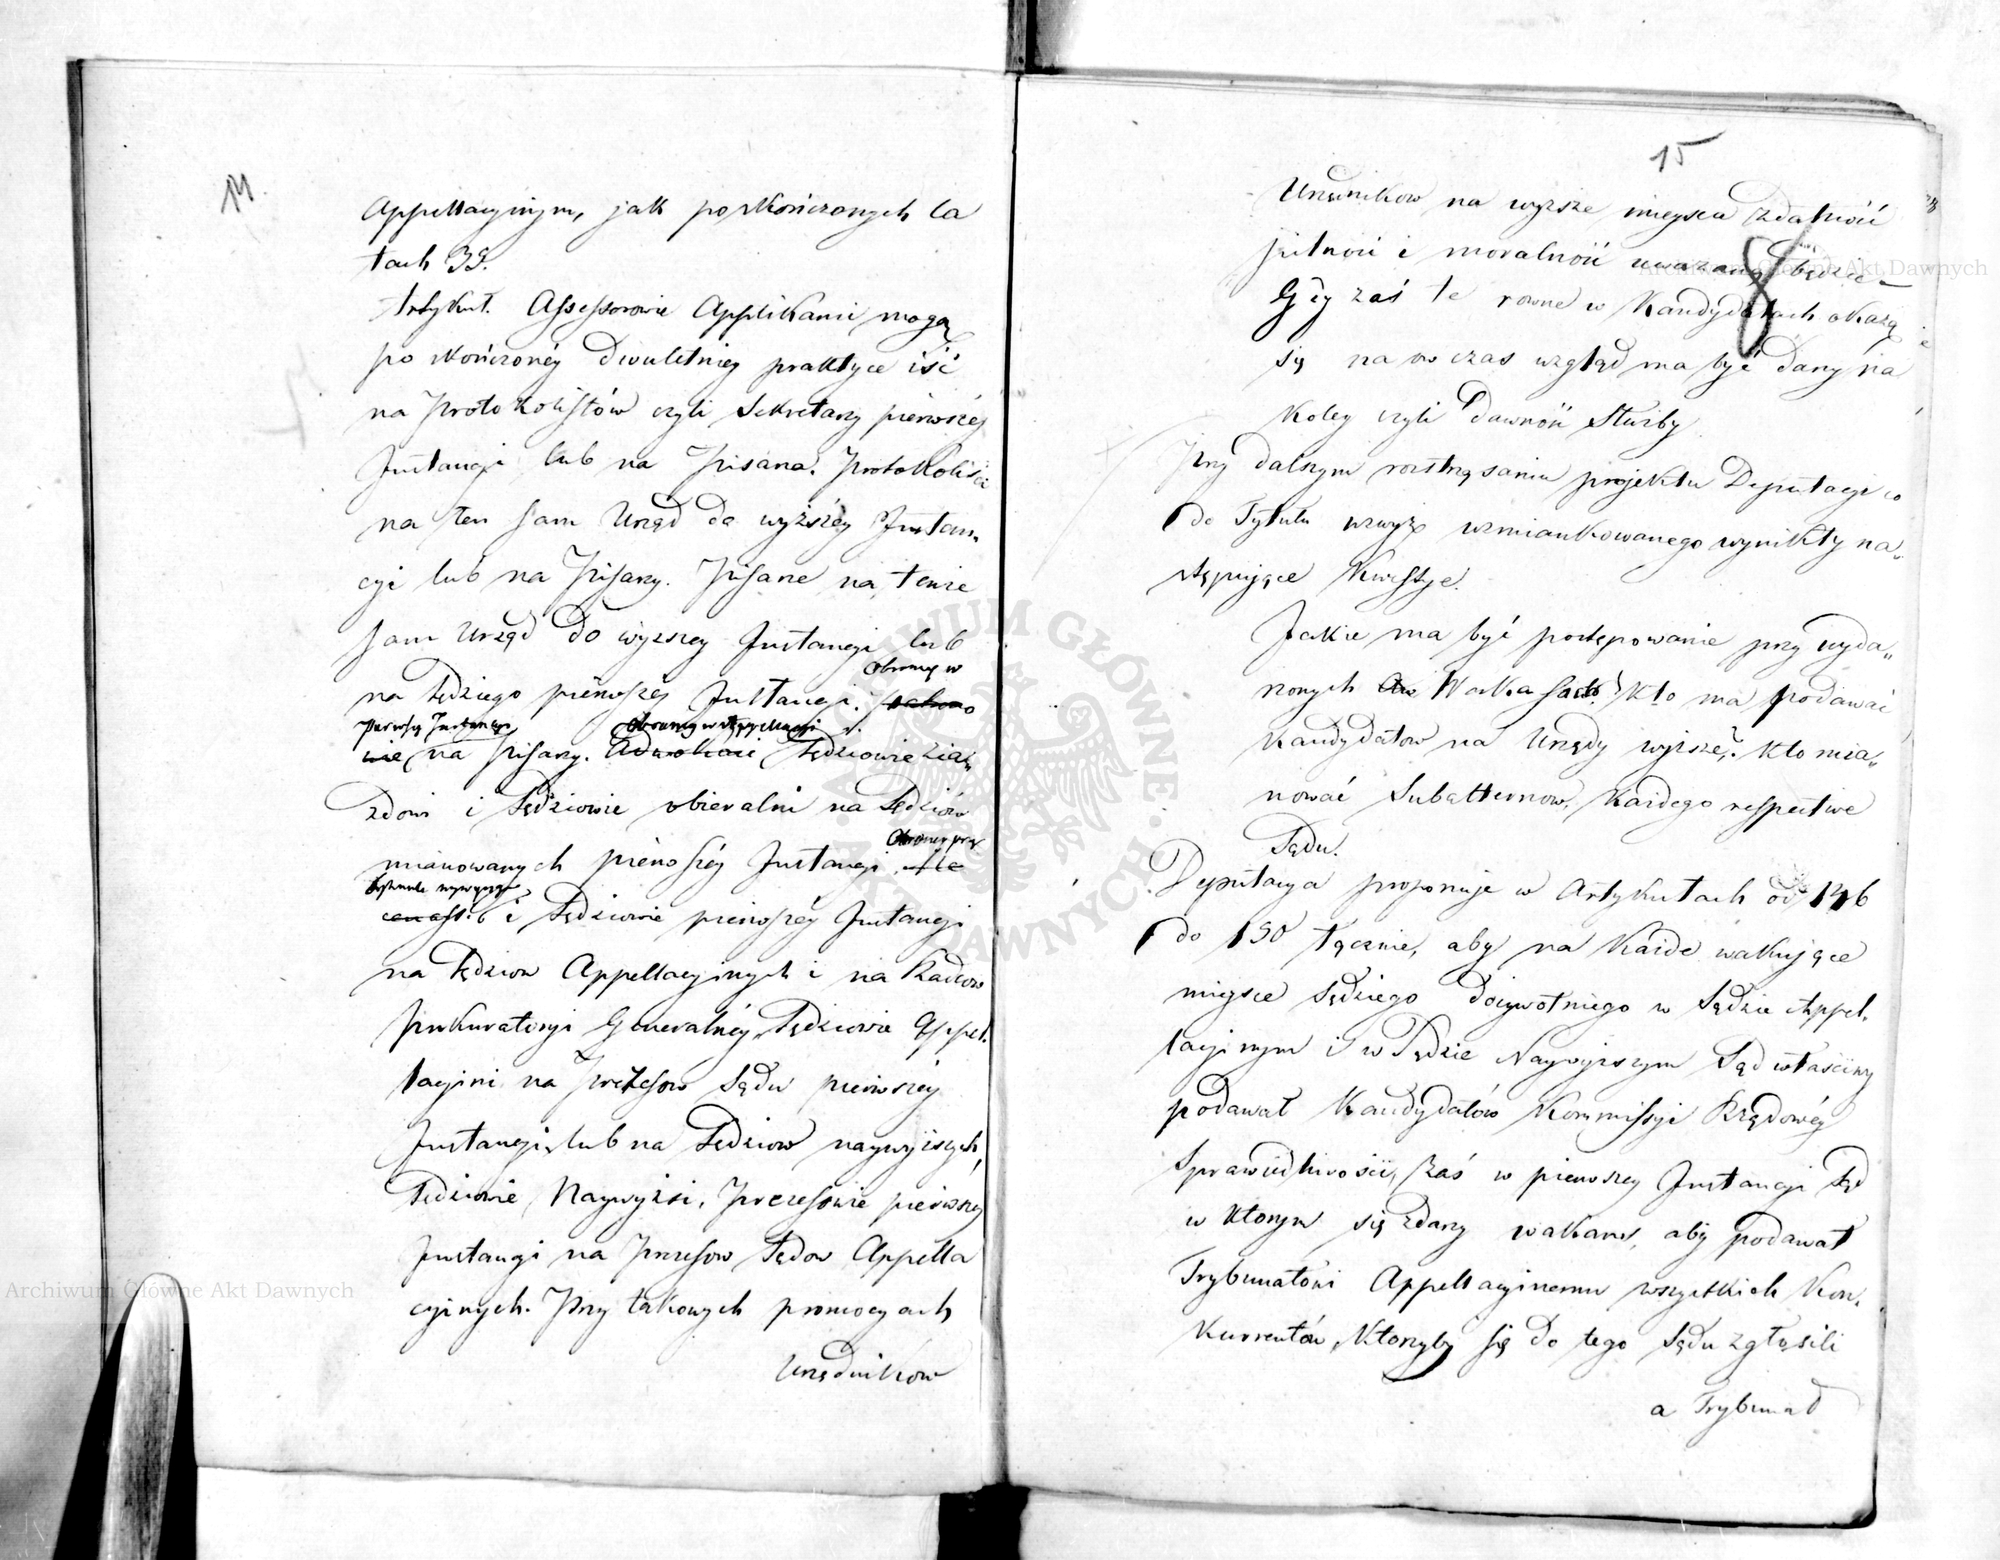 14.
Appellacyinym, jak po skończonych la
tach 35.
Artykuł. Assessorowie Applikanci mogą
po skończoney dwuletniey praktyce iść
na Protokolistów czyli Sekretarzy pierwszey
Instancyi lub na Pisarza. Protokoliści
na ten sam Urząd do wyższey Instan„
cyi lub na Pisarzy. Pisarze na tenże
sam Urząd do wyzszey Instancyi lub
Obrońcy w
na Sędziego pierwszey Instancyi.
Pierwszey Instancyi Obrońcy w Appellacyi
na Pisarzy. Adwokaci Sędziowie zia„
zdowi i Sędziowie obieralni na Sędziów
Obrońcy przy
mianowanych pierwszey Instancyi.
Trybunale naywyższym
i Sędziowie pierwszey Instancyi
na Sędziow Appellacyinych i na Radców
Prokuratoryi Generalney, Sędziowie Appel.
lacyini na Prezesow Sądu pierwszey
Instancyi, lub na Sędziow naywyższych,
Sędziowie Naywyżsi, Prezesowie pierwszey
Instancyi na Prezesow Sądow Appella
cyinych. Przy takowych promocyach
Urzędnikow
15
Urzędnikow na wyższe mieysca zdatność
pilność i moralność uważaną będzie
Gdy zaś te rowne w Kandydatach okażą
się na ow czas wzgląd ma być dany na
koley czyli dawność Służby
Przy dalszym roztrząsaniu projektu Deputacyi co
do Tytułu wzwyż wzmiankowanego wynikły na„
stępujące kwestye.
Jakie ma być postępowanie przy wyda„
rzonych Wakansach? Kto ma podawać
Kandydatow na Urzędy wyższe? Kto mia„
nować Subalternow, każdego respective
Sądu.
Deputacya proponuje w Artykułach od 146
do 150 łącznie, aby na każde wakujące
mieysce Sędziego dożywotniego w Sądzie Appel.
lacyinym i w Sądzie Naywyższym Sąd właściwy
podawał Kandydatów Kommissyi Rządowéy
Sprawiedliwości, zaś w pierwszey Instancyi Sąd
w ktorym się zdarzy wakans, aby podawał
Trybunałowi Appellacyinemu wszystkich Kon.
kurrentów, ktorzyby się do tego Sądu zgłosili
a Trybunał
Archiwum Główne Akt Dawnych
Archiwum Główne Akt Dawnych
ARCHIWUM GŁÓWNE AKT DAWNYCH